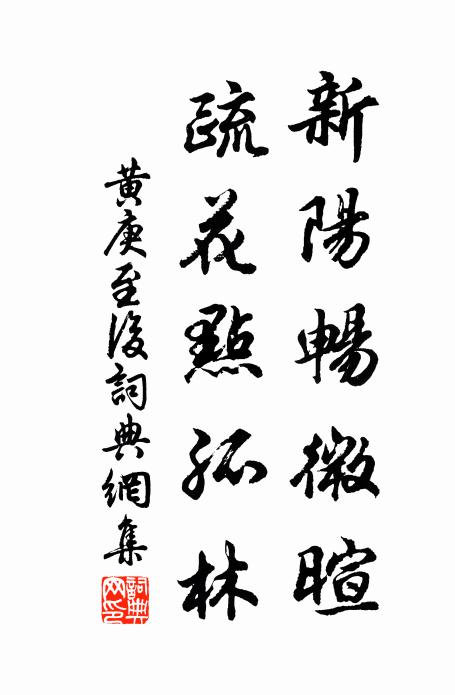 新陽暢微暄
疏花點孤林
黃庚至後詞典網集
詞典網印